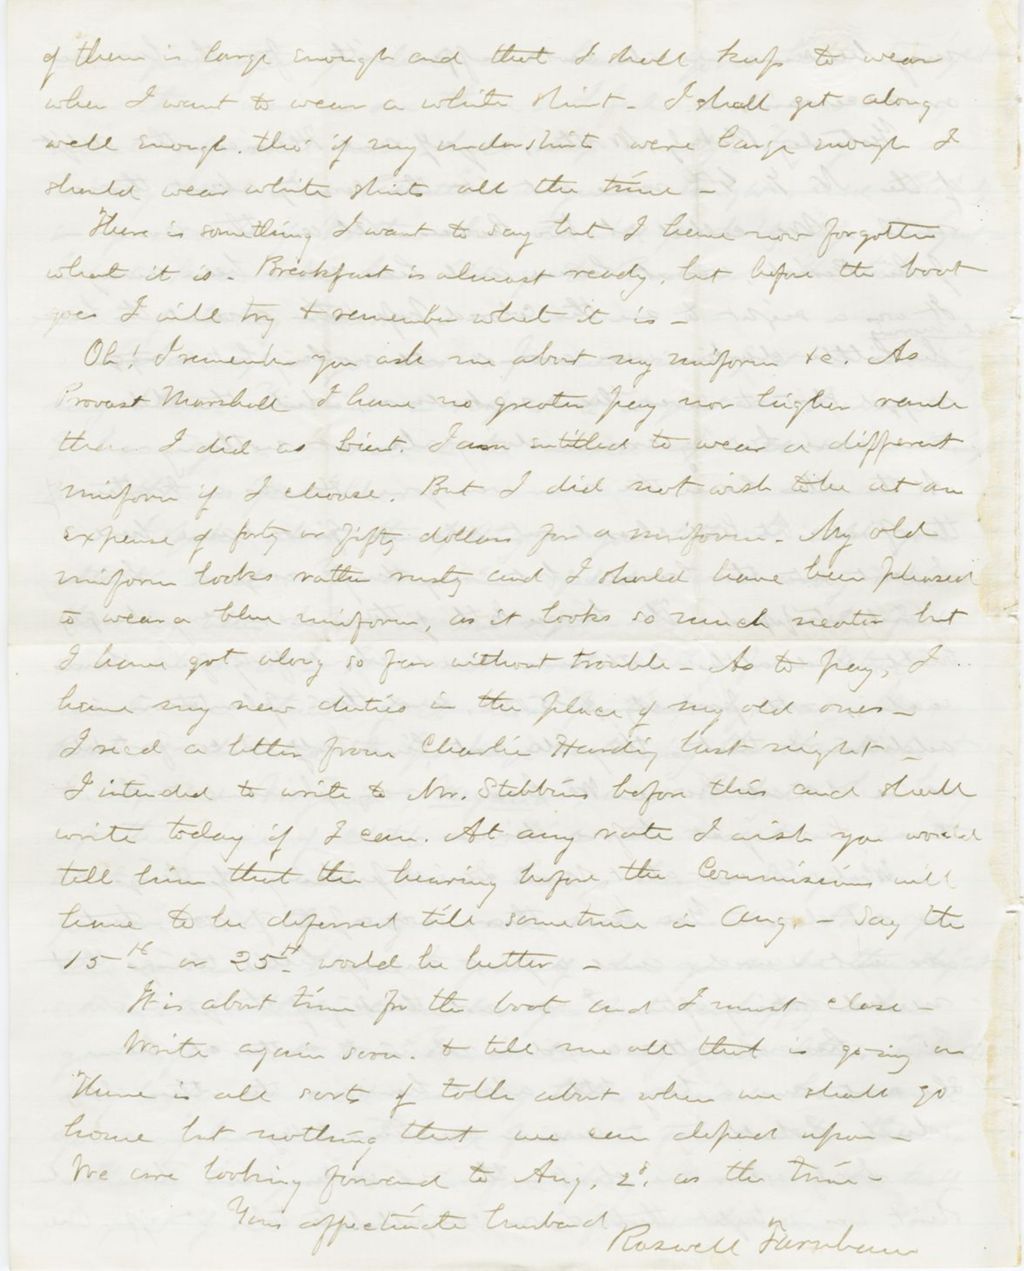 of them is large enough and that I shall keep to wear
when I want to wear a white shirt - I shall get along
well enough. tho' if my undershirts were large enough I
should wear white shirts all the time -
There is something I want to say but I have now forgotten
what it is. Breakfast is almost ready, but before the boat
goes I will try & remember what it is -
Oh! I remember you ask me about my uniform &c. As
Provost Marshall I have no greater pay nor higher rank
than I did as Lieut. I am entitled to wear a different
uniform if I choose. But I did not wish to be at an
expense of forty or fifty dollars for a uniform - My old
uniform looks rather rusty and I should have been pleased
to wear a blue uniform, as it looks so much neater but
I have got along so far without trouble - As to pay, I
have my new duties in the place of my old ones -
I recd a letter from Charlie Harding last night -
I intended to write to Mr. Stebbins before this and shall
write today if I can. At any rate I wish you would
tell him that the hearing before the Commissions will
have to be deferred till sometime in Aug. - Say the
15th or 25th would be better -
It is about time for the boat and I must close -
Write again soon. & tell me all that is going on
There is all sorts of talk about when we shall go
home but nothing that we can depend upon -
We are looking forward to Aug. 2d. as the time -
Your affectionate husband
Roswell Farnham